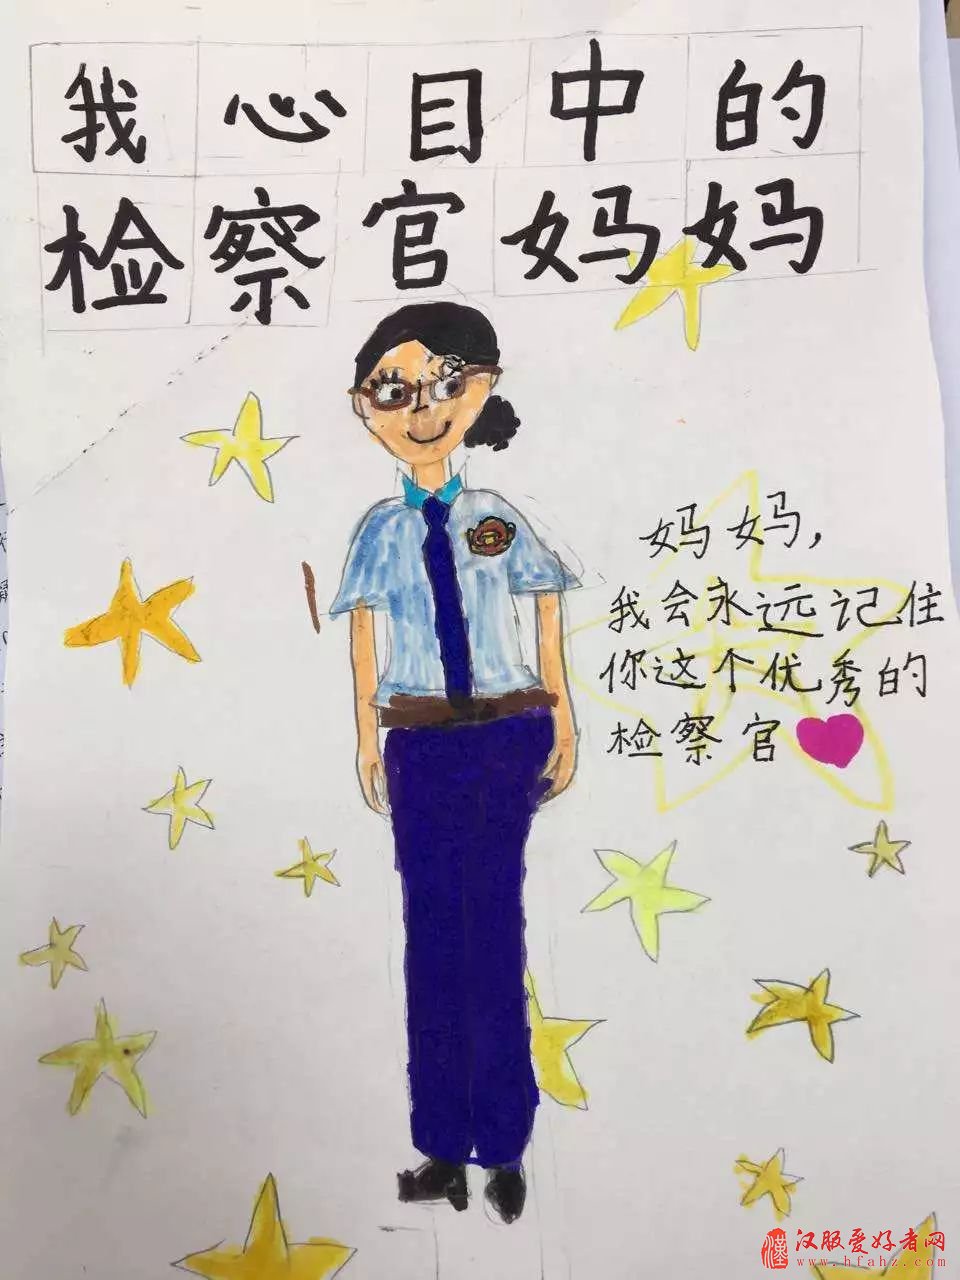 我心目中的
检察官妈妈
妈妈，
我会永远记住
你这个优秀的
检察官
汉服爱好者网
www.hfahz.com